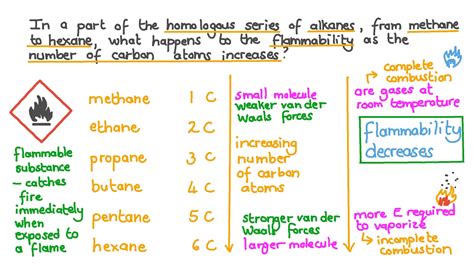 In a part of the homologous series of alkanes, from methane
to hexane, what happens to the flammability as the
number of carbon atoms increases?
methane 1 C
ethane 2 C
propane 3 C
butane 4 C
pentane 5 C
hexane 6 C
flammable
substance
– catches
fire
immediately
when
exposed to
a flame
small molecule
weaker van der
Waals forces
increasing
number
of carbon
atoms
stronger van der
Waals forces
larger molecule
complete
combustion
are gases at
room temperature
flammability
decreases
more E required
to vaporize
incomplete
combustion